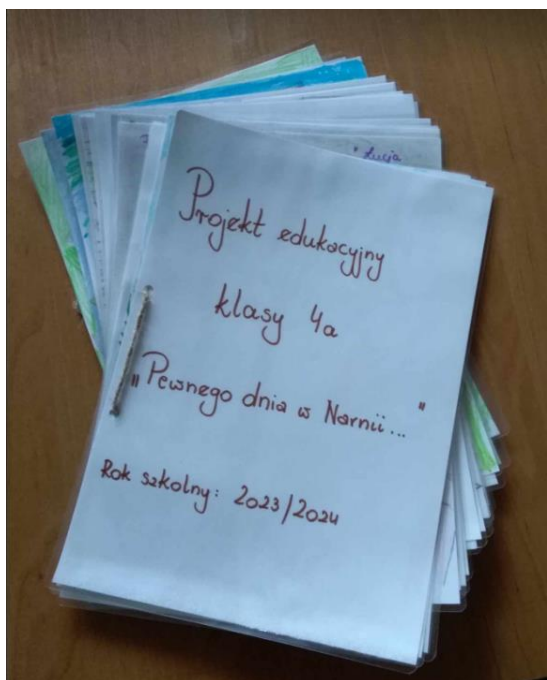 Łucja
Projekt edukacyjny
klasy 4a
„Pewnego dnia w Narnii..."
Rok szkolny: 2023/2024